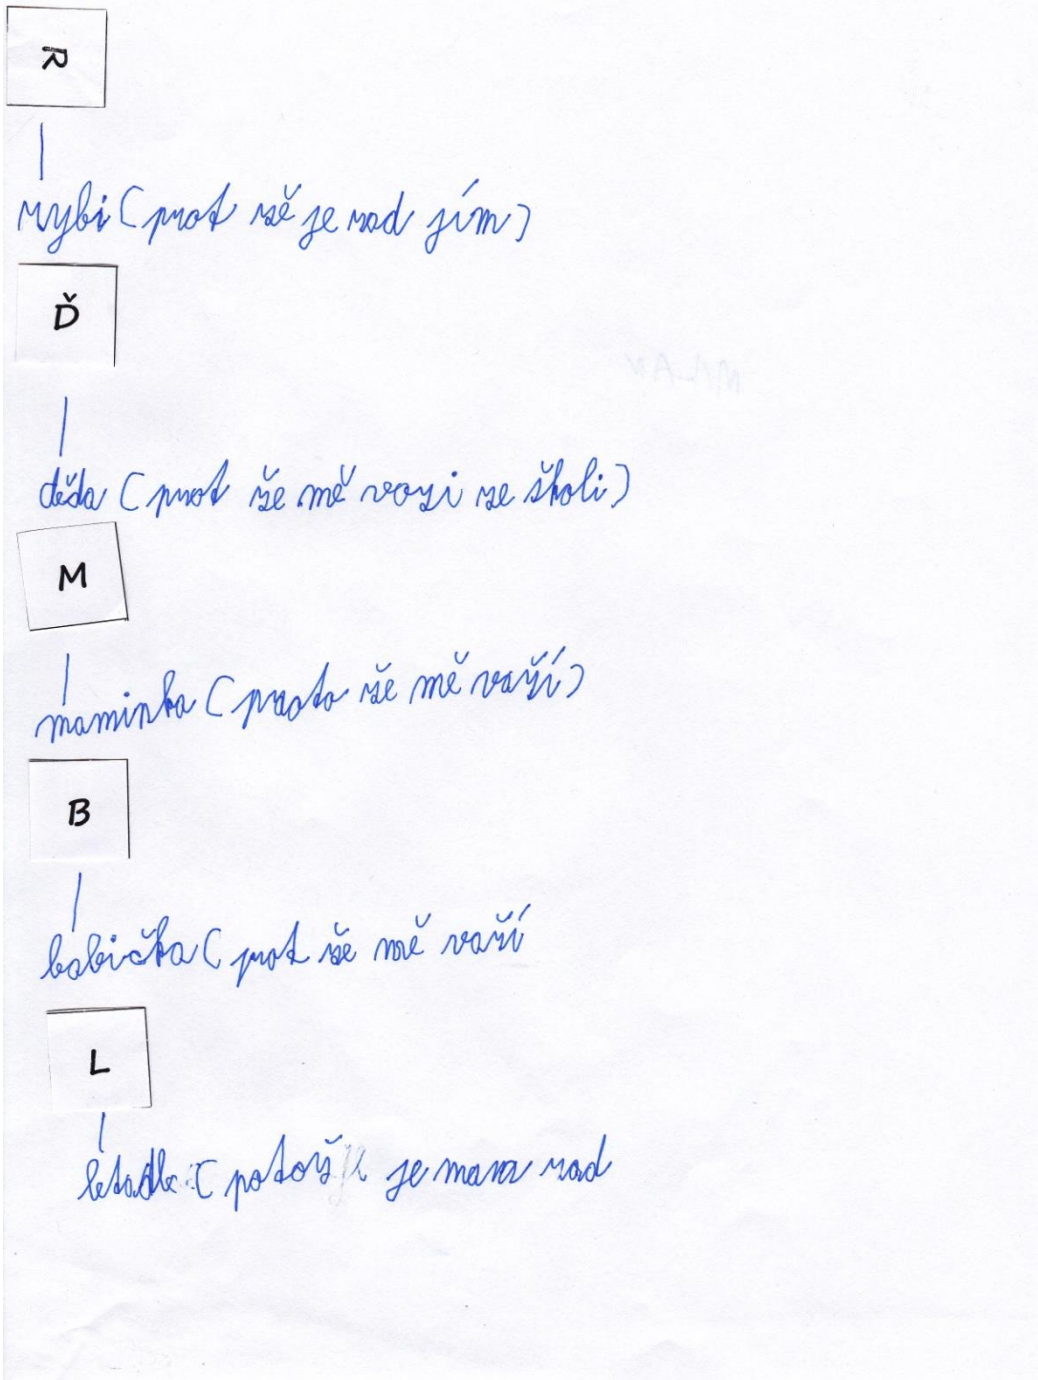 R
rybi (prot žě je rad jím)
Ď
děda (prot že mě vozi ze školi)
M
maminka (proto že mě vaří)
B
babička (prot že mě vaří
L
letadlo ( potož je mam rad